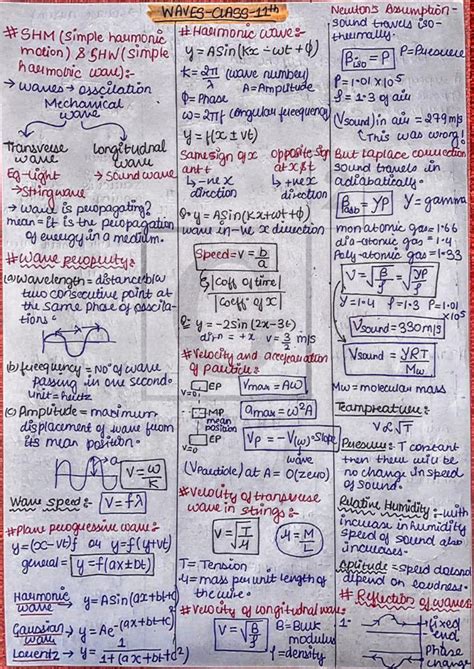 WAVES-CLASS-11th
# SHM (Simple harmonic
motion) & SHW (simple
harmonic wave):-
→ waves → osscilation
Mechanical
wave
Transverse
wave
Eg-light
→ String wave
longitudnal
wave
→ Sound wave
→ wave is peropagating?
mean = it is the peropagation
of energy in a medium.
# Wave peroperty:-
(a) Wavelength = distance b/w
two consecutive point at
the same phase of osscila-
tions
(b) frequency = No° of wave
passing in one second.
unit = hertz
(c) Amplitude = maximum
displacement of wave from
its mean position.
a
V = ω/K
Wave speed:- V = fλ
# Plane perogressive wave:-
y = (x-vt) or y = f(x+vt)
general = y = f(ax+bt)
Harmonic
wave → y = ASin(ax+bt+c)
Gaussian
wave → y = Ae^-(ax+bt+c)
Lorentz → y = 1/1+(ax+bt+c)²
# Harmonic wave:-
y = ASin(Kx - ωt + ϕ)
K = 2π/λ (wave number)
A = Amplitude
ϕ = Phase
ω = 2πf (angular frequency)
y = f(x ± vt)
Same sign of x
and t
↳ -ve x
direction
opposite sign
of x & t
↳ +ve x
direction
Q• y = ASin(Kx+ωt+ϕ)
wave in -ve x direction
Speed = V = b/a
|Coff of time|
|Coeff° of x|
Q:- y = -2Sin(2x-3t)
dirn = +x V = 3/2 m/s
# Velocity and acceleration
of particle:-
V=0
EP
MP
mean
position
EP
V=0
Vmax = Aω
amax = ω²A
VP = -V(ω) • Slope
wave
(Vparticle) at A = 0(zero)
# Velocity of transverse
wave in strings:-
V = √T/μ
μ = M/L
T = Tension
μ = mass per unit length of
the wire.
# Velocity of longitudnal wave:-
V = √B/ρ
B = Bulk
modulus
ρ = density
Newton's Assumption-
Sound travels iso-
thermally.
βiso = P
P = Pressure
P = 1.01 × 10⁵
ρ = 1.3 of air
(Vsound) in air = 279 m/s
(This was wrong!
But Laplace correction
sound travels in
adiabatically.
βadb = γP
γ = gamma
monatomic gas = 1.66
dia-atomic gas = 1.4
Poly-atomic gas = 1.33
V = √β/ρ = √γP/ρ
γ = 1.4 ρ = 1.3 P = 1.01
×10⁵
Vsound = 330 m/s
Vsound = √γRT/Mw
Mw = molecular mass
Teampreature:-
V ∝ √T
Pressure:- T constant
then there will be
no change in speed
of sound.
Relative Humidity:- with
increase in humidity
speed of sound also
increases.
Aplitude = speed doesnd
depend on loudness.
# Reflection of waves
1-
fixed
end
Phase